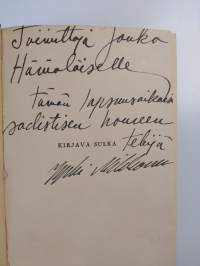 Toimittaja Jouko
Hämäläiselle
tämän lapsuusaikaisen
sadistisen
tekijä
KIRJAVA SULKA